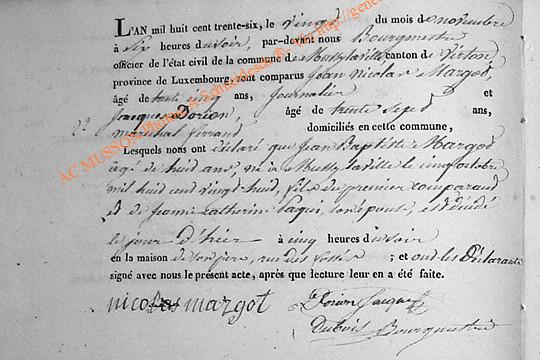 L'AN mil huit cent trente-six, le vingt du mois de novembre
à six heures du soir, par-devant nous Bourgmestre
officier de l'état civil de la commune de Mussy la ville canton de Virton,
province de Luxembourg, sont comparus Jean Nicolas Margod,
âgé de trente cinq ans, Journalier et
Jacques Dorion, âgé de trente sept ans,
29 maréchal ferrand domiciliés en cette commune,
Lesquels nous ont déclaré que Jean Baptiste Margod
âgé de huit ans, né à Mussy la ville le cinq octobre
mil huit cent vingt-huit, fils du premier comparand
et de Jeanne Catherine son épouse, est décédé
le jour d'hier à cinq heures du soir
en la maison de son père, rue des ; et ont les Déclarants
signé avec nous le présent acte, après que lecture leur en a été faite.
nicolas margot
Dorion Jacques
Dubois Bourgmestre
AC MUSSON Photos